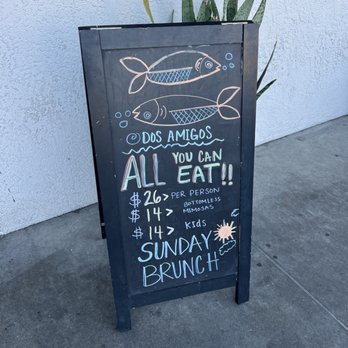 DOS AMIGOS
ALL YOU CAN
EAT!!
$26> PER PERSON
$14> BOTTOMLESS
MIMOSAS
$14> KidS
SUNDAY
BRUNCH